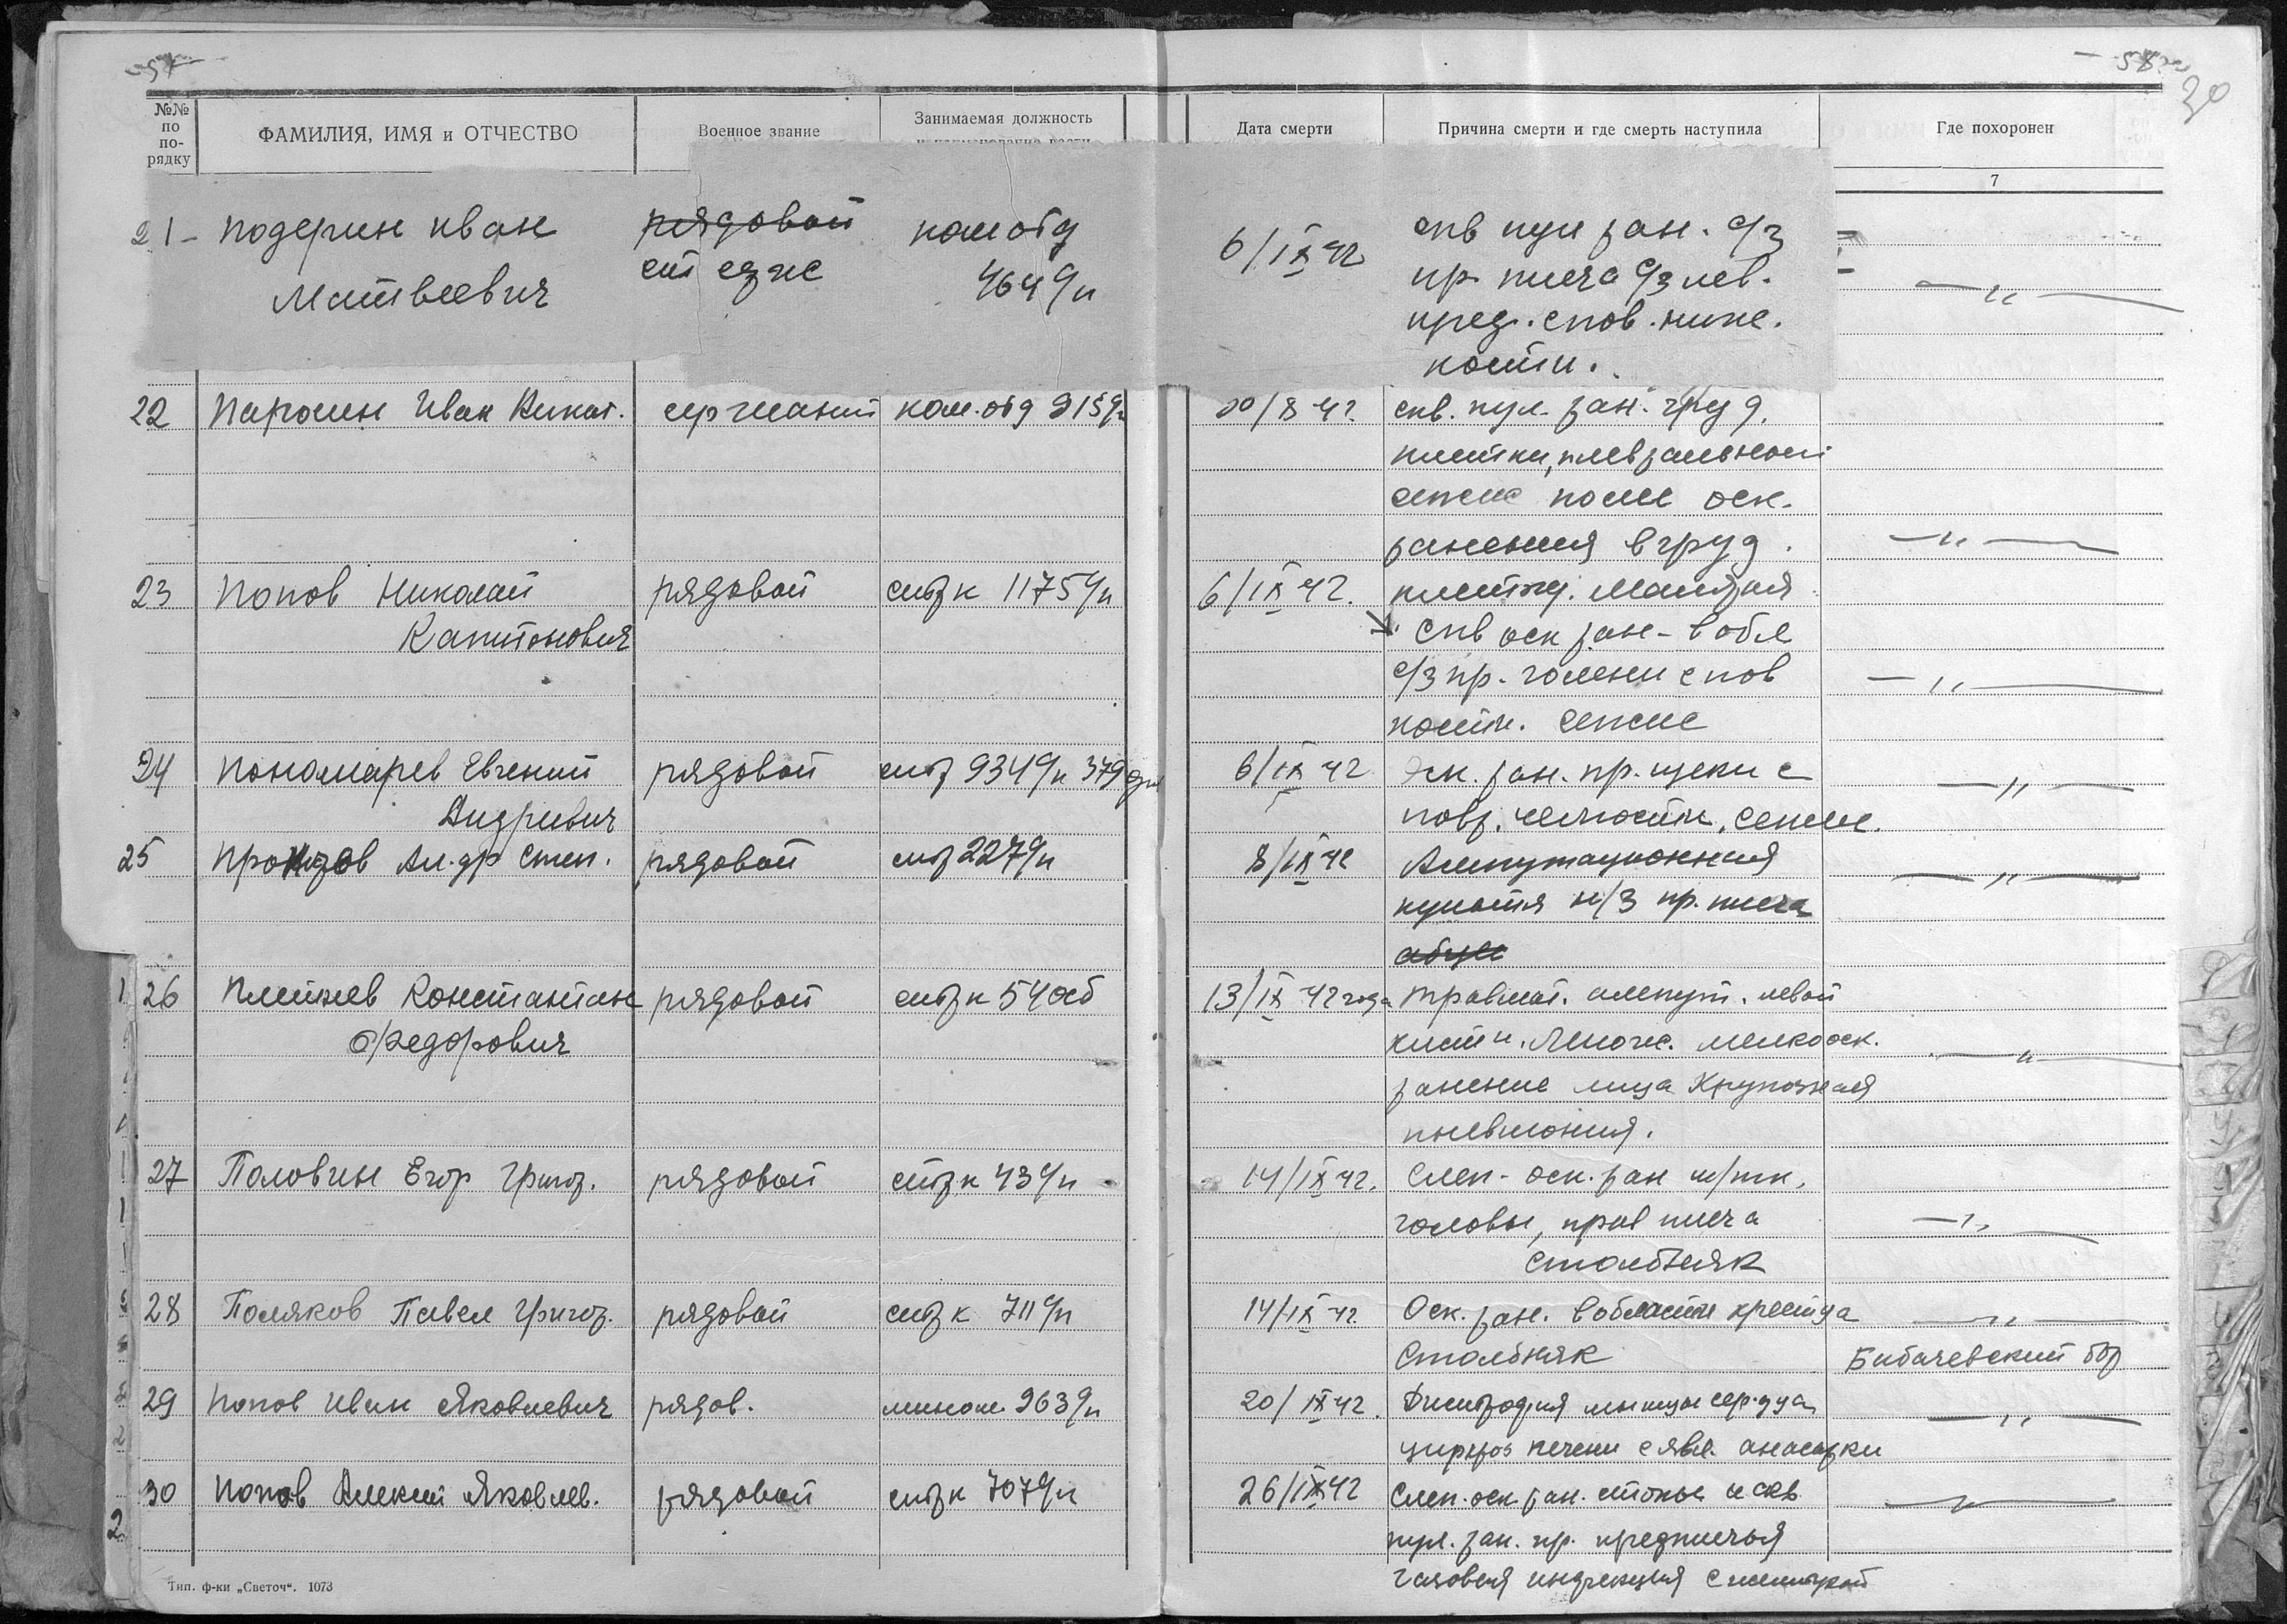 57
58
30
№№ по по-рядку
ФАМИЛИЯ, ИМЯ и ОТЧЕСТВО
Военное звание
Занимаемая должность
Дата смерти
Причина смерти и где смерть наступила
Где похоронен
7
21 - Подерин Иван
Матвеевич
рядовой
ст серж
ком отд
464 с/п
6/IX 42
скв пул ран. с/з
пр. плеча с/з лев.
пред. с пов. ниж.
кости.
— " —
22 Паромин Иван Никит.
сержант
ком. отд 915 с/п
20/8 42.
скв. пул. ран. груд.
клетки, плевральной
сепсис после оск.
ранения в груд.
— " —
23 Попов Николай
Капитонович
рядовой
стр к 1175 с/п
6/IX 42.
клетку. Малярия
скв оск ран - в обл
с/з пр. голени с пов
кости. Сепсис
— " —
24 Пономарев Евгений
Андреевич
рядовой
стр 934 с/п 379
6/IX 42
Оск. ран. пр. щеки с
повр. челюсти, сепсис.
— " —
25 Пронзов Ал-др Степ.
рядовой
стр 227 с/п
8/IX 42
Ампутационная
культя н/з пр. плеча
— " —
26 Плетнев Константин
Федорович
рядовой
стр к 54 об
13/IX 42 года
травмат. ампут. левой
кисти. Множ. мелкооск.
ранение лица Крупозная
пневмония.
— " —
27 Половин Егор Григор.
рядовой
стр к 43 с/п
14/IX 42.
Слеп - оск. ран м/тк.
головы, прав плеча
столбняк
— " —
28 Поляков Павел Григор.
рядовой
стр к 711 с/п
14/IX 42.
Оск. ран. в области крестца
— " —
Столбняк
Бибачевский бор
29 Попов Иван Яковлевич
рядов.
мином. 963 с/п
20/IX 42.
Дистрофия мышцы сердца
цирроз печени с явл. анасарки
— " —
30 Попов Алексей Яковлев.
рядовой
стр к 707 с/п
26/IX 42
Слеп. оск ран. стопы и скв
пул. ран. пр. предплечья
— " —
газовая инфекция
Тип. ф-ки „Светоч“. 1073